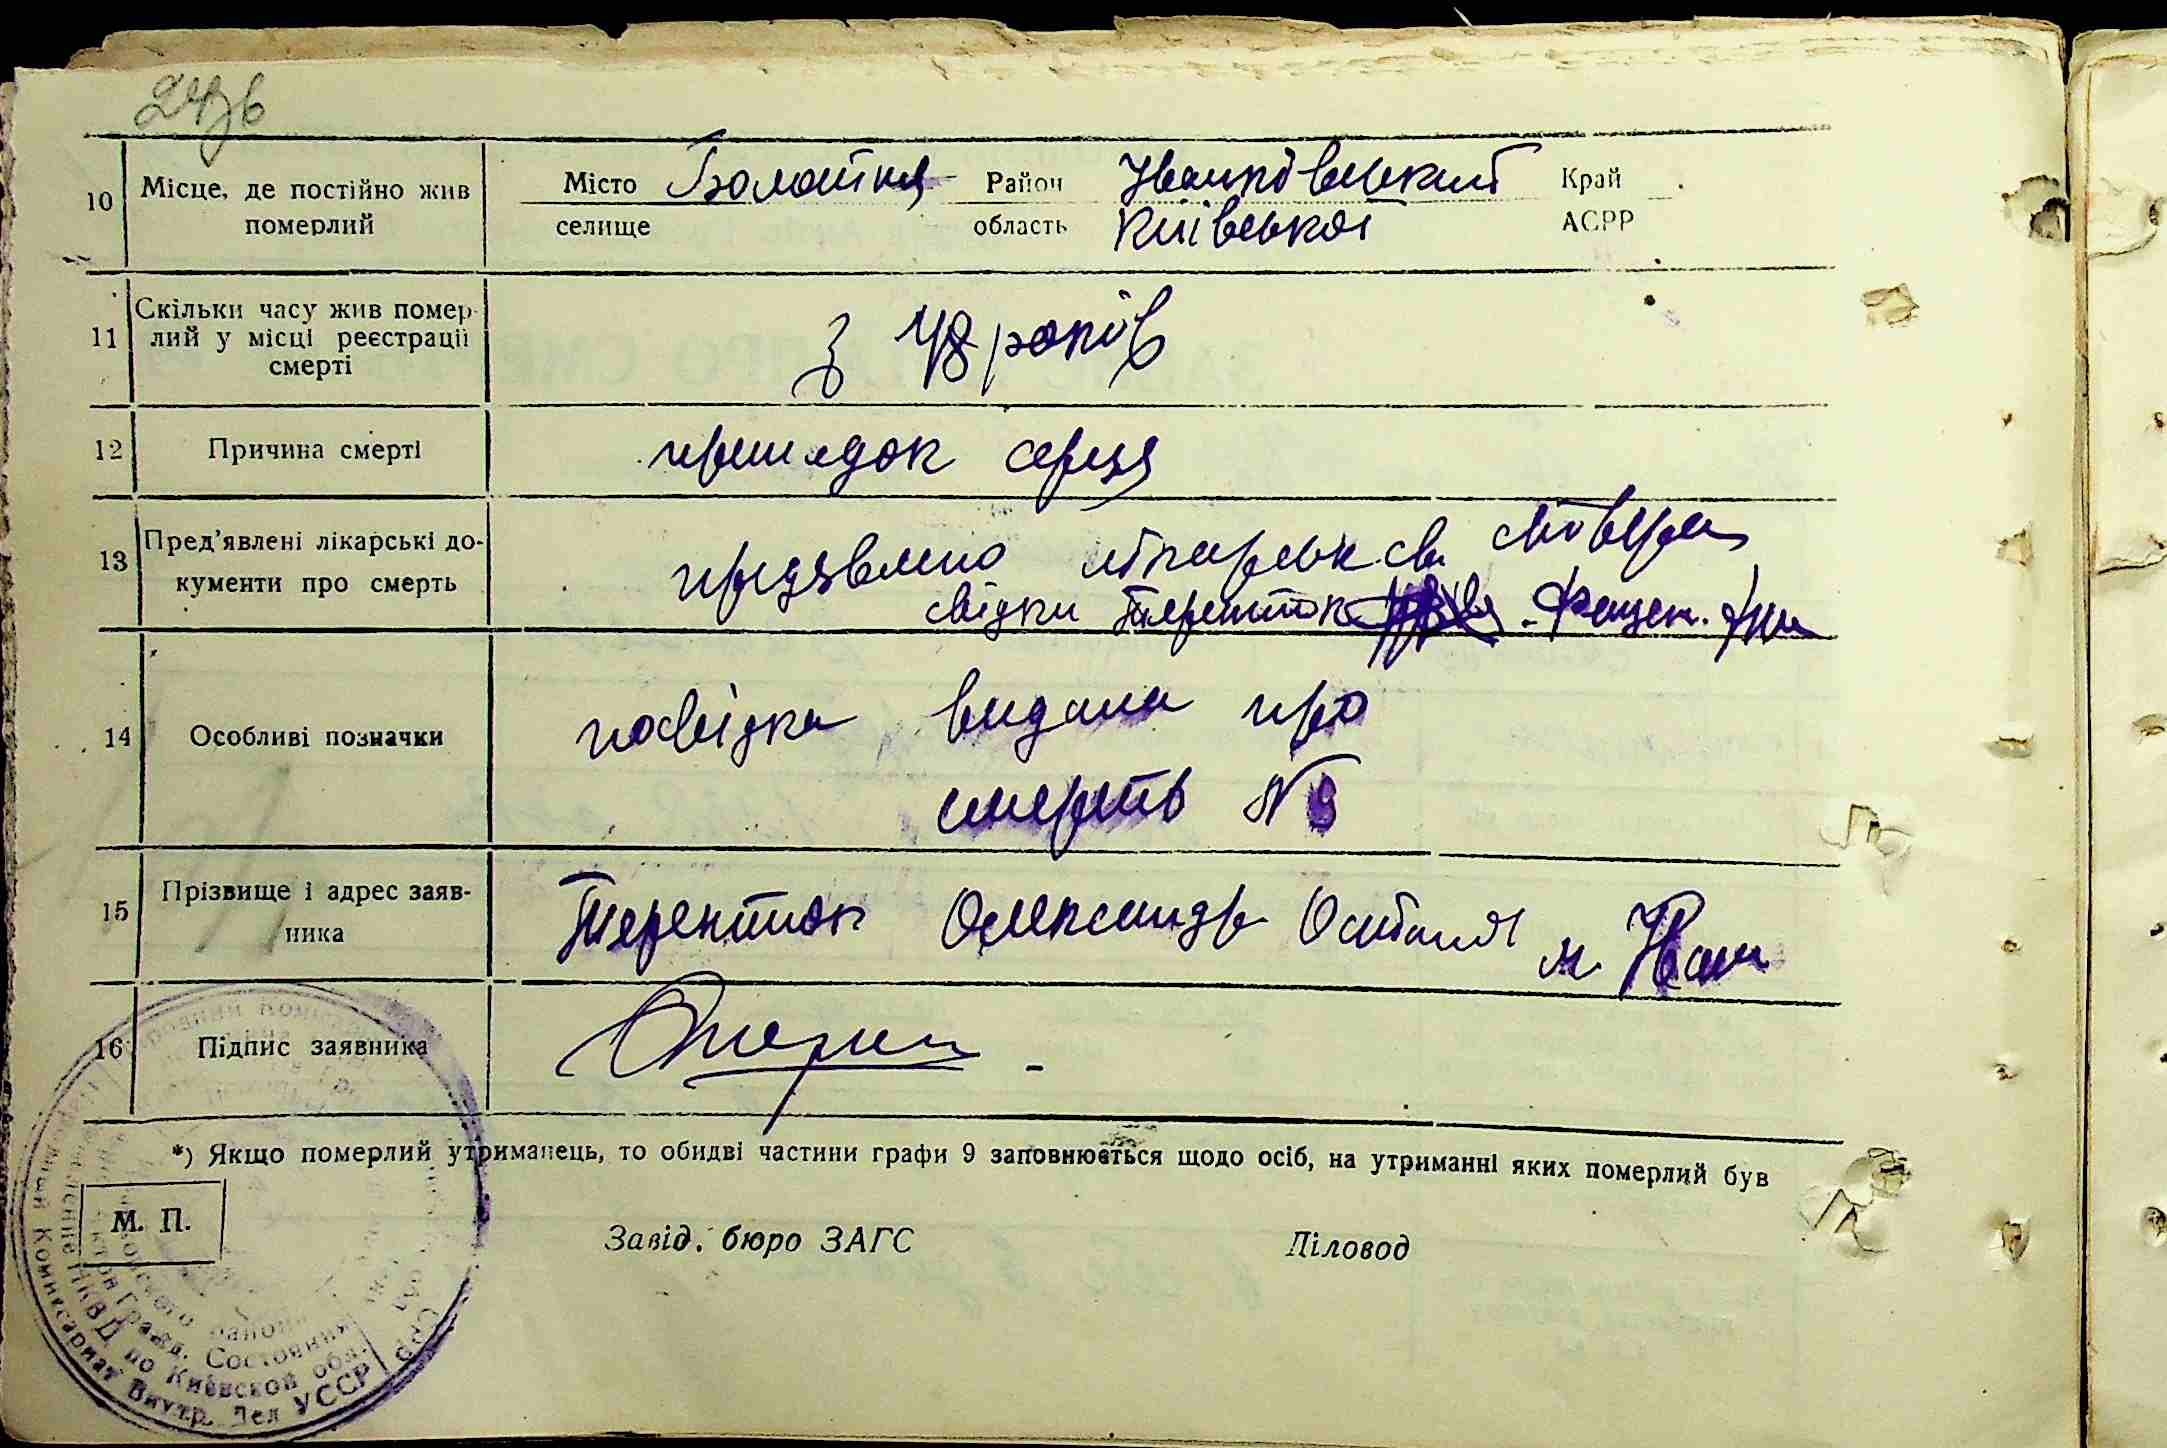 10 Місце, де постійно жив померлий
Місто селище Болотня Район Иванківський Край
область Київської АСРР
11 Скільки часу жив помер-
лий у місці реєстрації
смерті
з 48 років
12 Причина смерті
припадок серця
13 Пред'явлені лікарські до-
кументи про смерть
свідки
14 Особливі позначки
посвідка видана про
смерть N 9
15 Прізвище і адрес заяв-
ника
Терентюк Олександр
16 Підпис заявника
*) Якщо померлий утриманець, то обидві частини графи 9 заповнюється щодо осіб, на утриманні яких померлий був
М. П.
Завід. бюро ЗАГС Діловод
района
Гражд. Состояний
НКВД по Киевской обл.
Комиссариат Внутр. Дел УССР